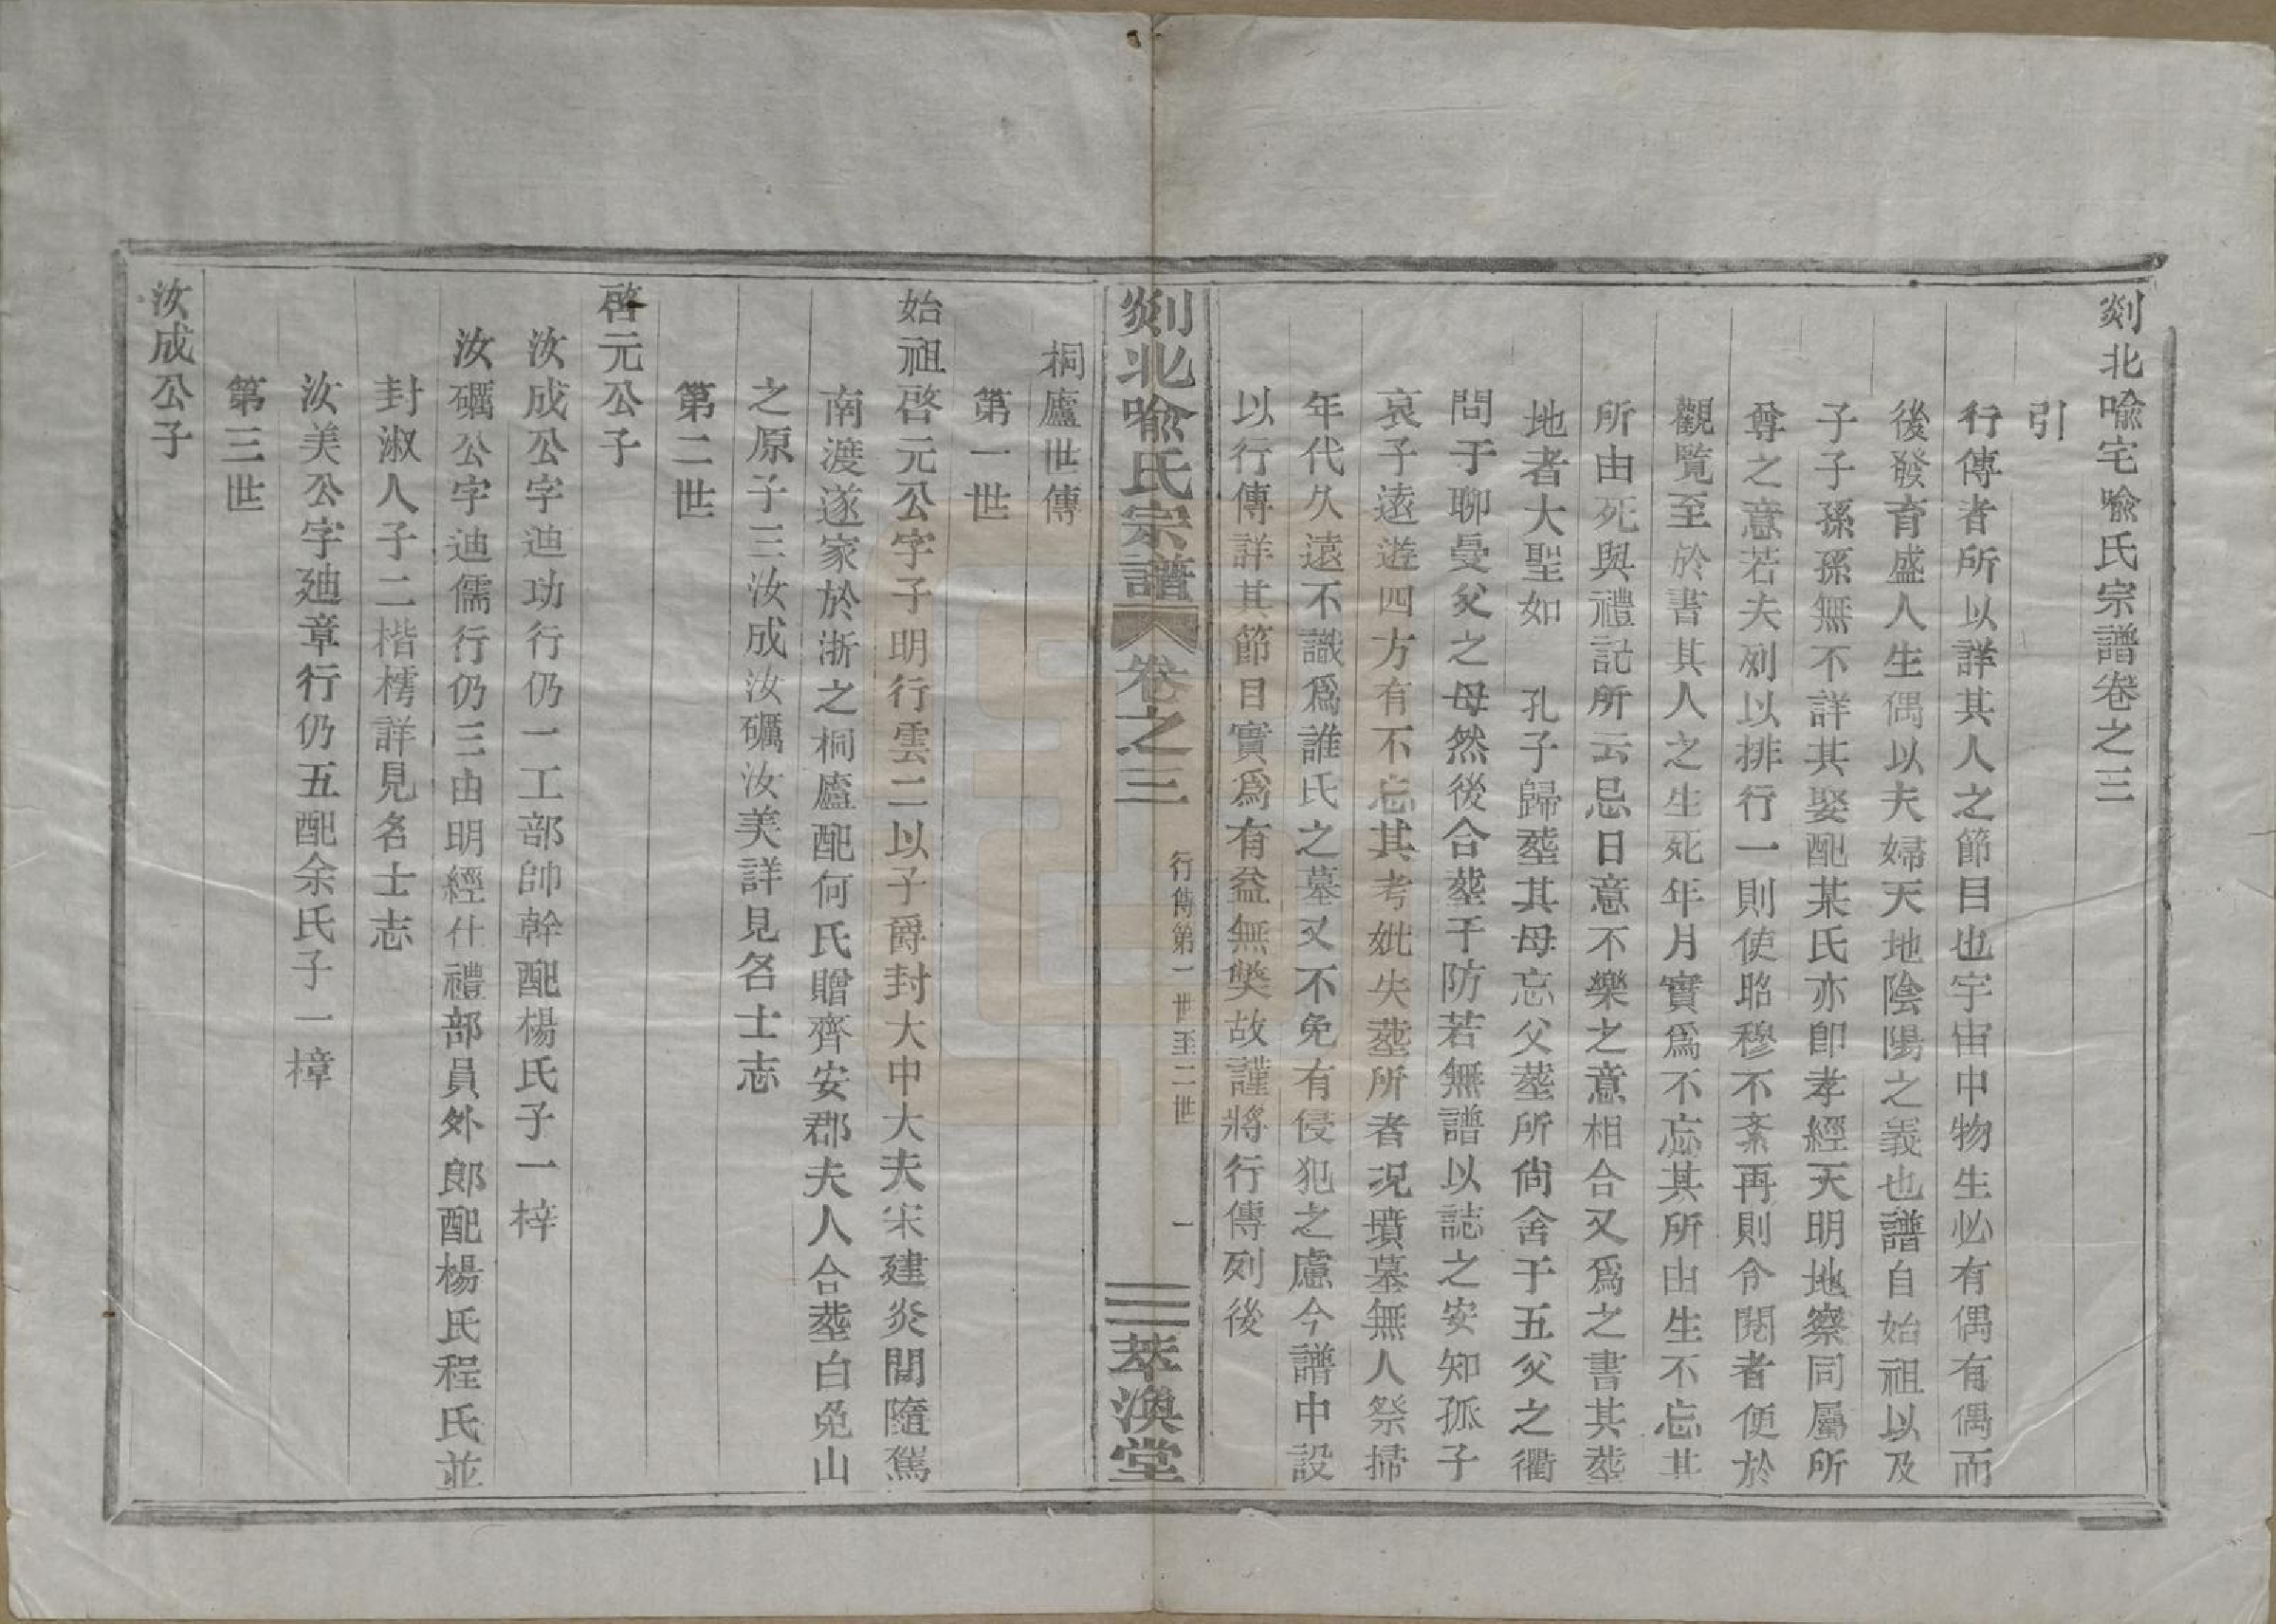 剡北喻宅喻氏宗譜卷之三
引
行傳者所以詳其人之節目也宇宙中物生必有偶有偶而
後發育盛人生偶以夫婦天地陰陽之義也譜自始祖以及
子子孫孫無不詳其娶配某氏亦卽孝經天明地察同屬所
尊之意若夫列以排行一則使昭穆不紊再則令閱者便於
觀覽至於書其人之生死年月實爲不忘其所由生不忘其
所由死與禮記所云忌日意不樂之意相合又爲之書其塟
地者大聖如　孔子歸塟其母忘父塟所尙舍于五父之衢
問于聊曼父之母然後合塟于防若無譜以誌之安知孤子
哀子遠遊四方有不忘其考妣失塟所者况墳墓無人祭掃
年代久遠不識爲誰氏之墓又不免有侵犯之慮今譜中設
以行傳詳其節目實爲有益無獘故謹將行傳列後
剡北喻氏宗譜 卷之三 行傳第一世至二世 一 萃渙堂
桐廬世傳
第一世
始祖啓元公字子明行雲二以子爵封大中大夫宋建炎間隨駕
南渡遂家於浙之桐廬配何氏贈齊安郡夫人合塟白兔山
之原子三汝成汝礪汝美詳見名士志
第二世
啓元公子
汝成公字迪功行仍一工部帥幹配楊氏子一梓
汝礪公字迪儒行仍三由明經仕禮部員外郎配楊氏程氏並
封淑人子二楷樗詳見名士志
汝美公字廸章行仍五配余氏子一樟
第三世
汝成公子